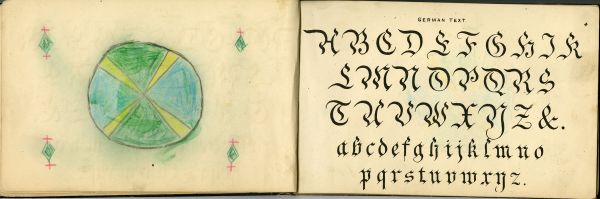 GERMAN TEXT.
A B C D E F G H I K
L M N O P Q R S
T U V W X Y Z &.
a b c d e f g h i j k l m n o
p q r s t u v w x y z.